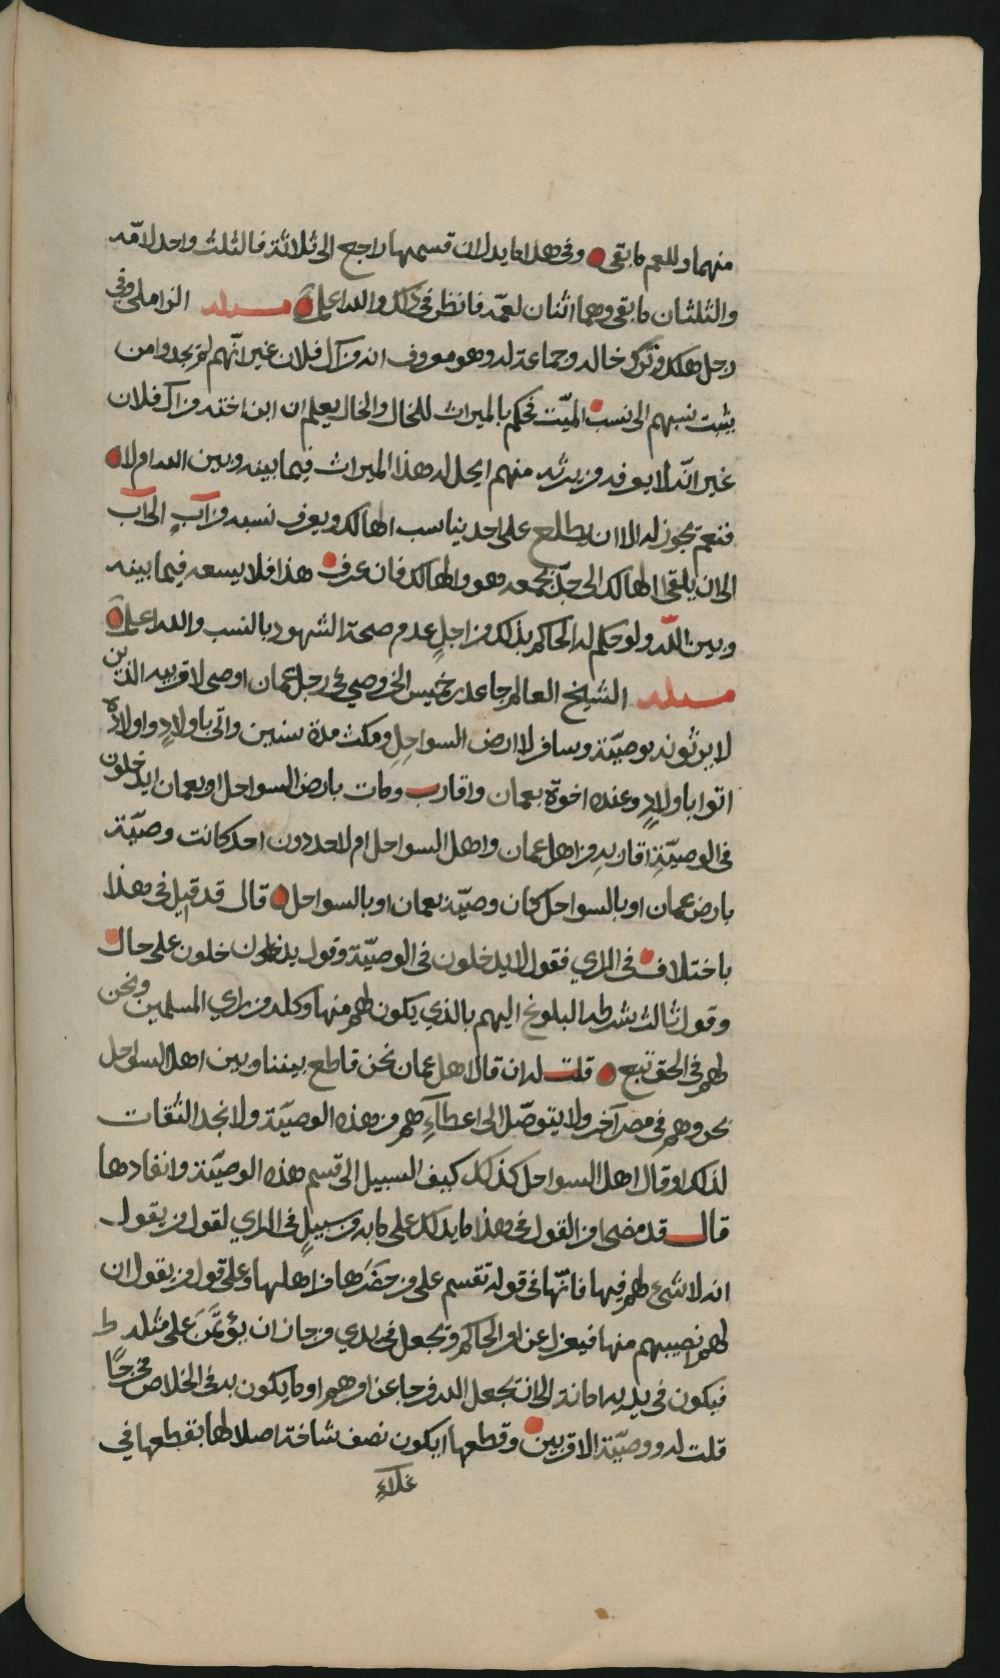 منهما وللعم ما بقى وفي هذا ما يدل ان قسمها راجع الى ثلاثة فالثلث واحد لامّه
والثلثان ما بقى وهما اثنان لعمّه فانظر في ذلك والله اعلم مسئله الزاملي وفي
رجل هلك وترك خاله وجماعة له وهو معروف انه من آل فلان غير انّهم لم يجدوا من
يثبت نسبهم الى نسب الميّت فحكم بالميراث للخال والخال يعلم ان ابن اخته من آل فلان
غير انّه لا يعرفه من يرثه منهم ايحل له هذا الميراث فيما بينه وبين الله ام لا
فنعم يجوز له الا ان يطلع على احد يناسب الهالك ويعرف نسبه من آبٍ الى آب
الى ان يلقى الهالك الى جدّ يجمعه هو والهالك فان عرف هذا فلا يسعه فيما بينه
وبين اللّه ولو حكم له الحاكم بذلك من اجلِ عدم صحة الشهود بالنسب والله اعلم
مسئله الشيخ العالم جاعد بن خميس الخروصي في رجل بعمان اوصى لاقربيه الذين
لا يرثونه بوصيّة وسافر لا ارض السواحلِ ومكث مدة سنين واتى باولادٍ واولاده
اتوا باولادٍ وعنده اخوة بعمان واقارب ومات بارض السواحل او بعمان ايدخلون
في الوصيّةِ اقاربه من اهل عمان واهل السواحل ام لاحد دون احد كانت وصيّة
بارض عمان او بالسواحل كان وصيّة بعمان او بالسواحل قال قد قيل في هذا
باختلاف في الراي فقول لا يدخلون في الوصيّة وقول يدخلون خلون على حال
وقول ثالث بشرطه البلوغ اليهم بالذي يكون لهم منها وكله من راي المسلمين ونحن
لهم في الحق تبع قلت له ان قال اهل عمان نحن قاطع بيننا وبين اهل السواحل
بحر وهم في مصر آخر ولا يتوصّل الى اعطآءِهم من هذه الوصيّة ولا نجد الثقات
لذلك او قال اهل السواحل كذلك كيف السبيل الى قسم هذه الوصيّة وانفاذها
قال قد مضى من القول في هذا ما يدلك على ما به من سبيلٍ في الراي لقول من يقول
انه لا شيء لهم فيها فانّها في قوله تقسم على من حضرها من اهلها وعلى قول من يقول ان
لهم نصيبهم منها فيعزل عن امر الحاكم ويجعل في يدي من جاز ان يؤتمَنَ على مثله
فيكون في يديه امانة الى ان يجعل الله فرجا عن امرهم او ما يكون به في الخلاص مخرجًا
قلت له ووصيّة الاقربين وقطعها ايكون نصف شاخة اصلا لها بقطعها في
غلاءِ